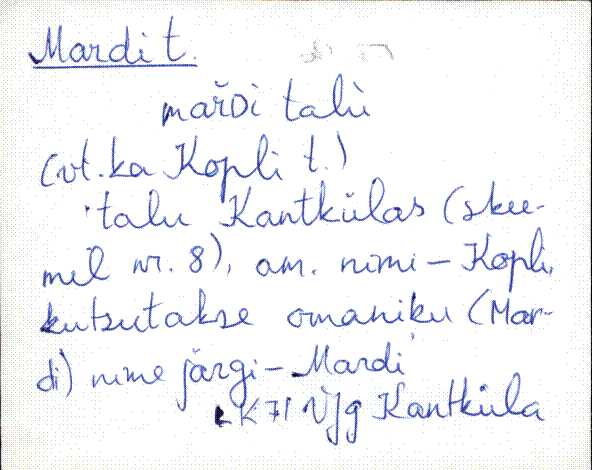 Mardi t.
maŕDi talù
(vt. ka Kopli t.)
talu Kantkülas (skee-
mil nr. 8), am. nimi – Kopli,
kutsutakse omaniku (Mar-
di) nime järgi – Mardi
LK 71 VJg Kantküla